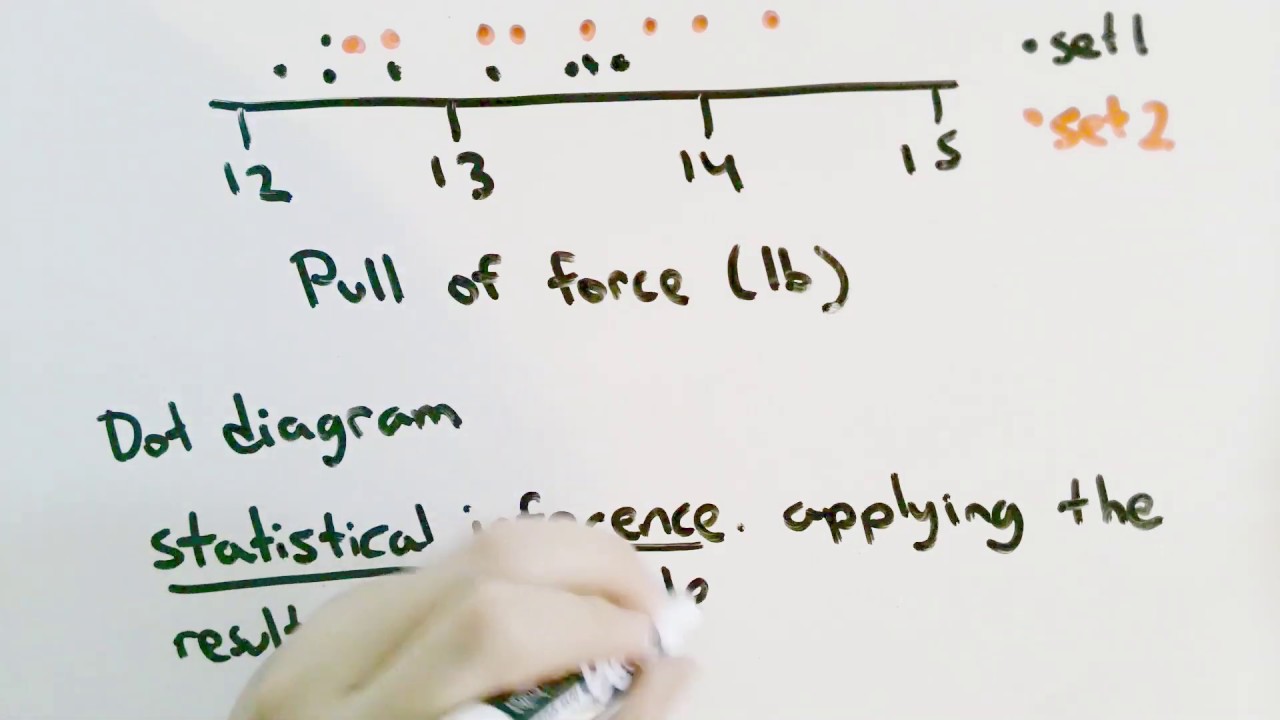 • set 1
• set 2
12 13 14 15
Pull of force (lb)
Dot diagram
statistical inference. applying the